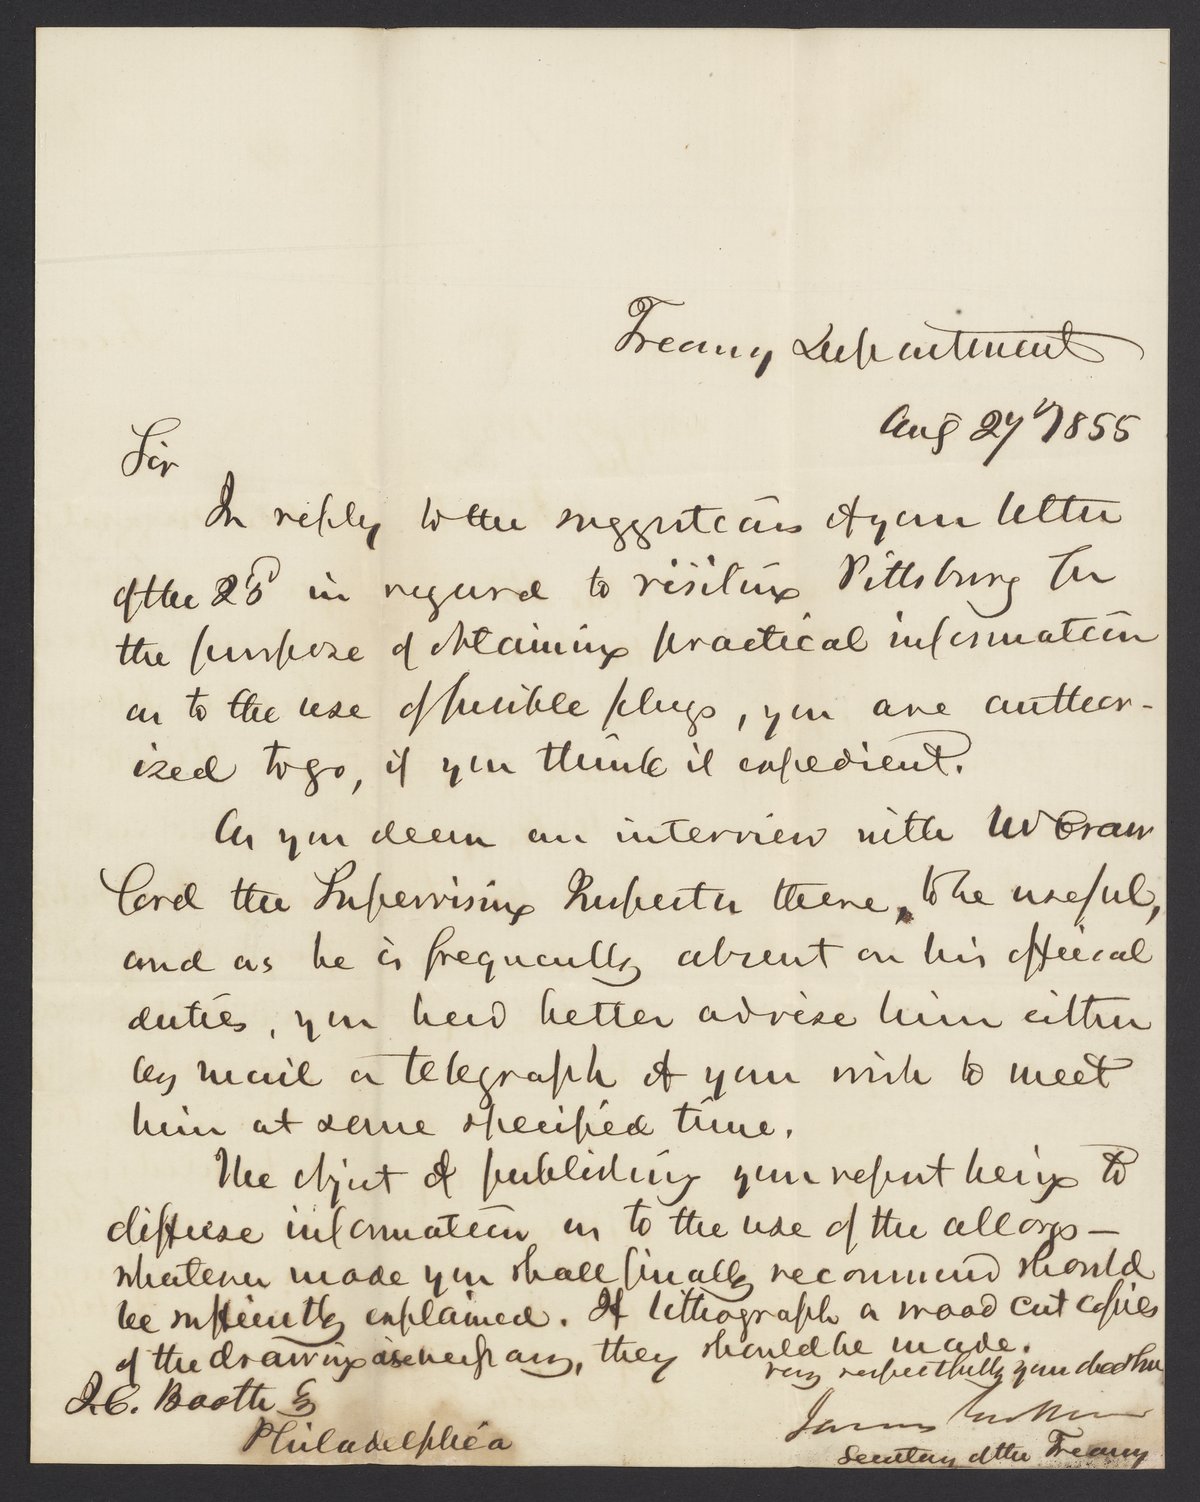 Treasury Department
Aug 27th 1855
Sir
In reply to the suggestions of your letter
of the 23d in regard to visiting Pittsburg for
the purpose of obtaining practical information
as to the use of fusible plugs, you are author-
ized to go, if you think it expedient.
As you deem an interview with Mr Craw
ford the Supervising Inspector there, to be useful,
and as he is frequently absent on his official
duties, you had better advise him either
by mail or telegraph of your wish to meet
him at some specified time.
The object of publishing your report being to
diffuse information as to the use of the alloys—
whatever mode you shall finally recommend should
be sufficiently explained. If lithograph or wood cut copies
of the drawing is necessary, they should be made.
very respectfully your obed
J.C. Booth Esq
James Guthrie
Philadelphia
Secretary of the Treasury